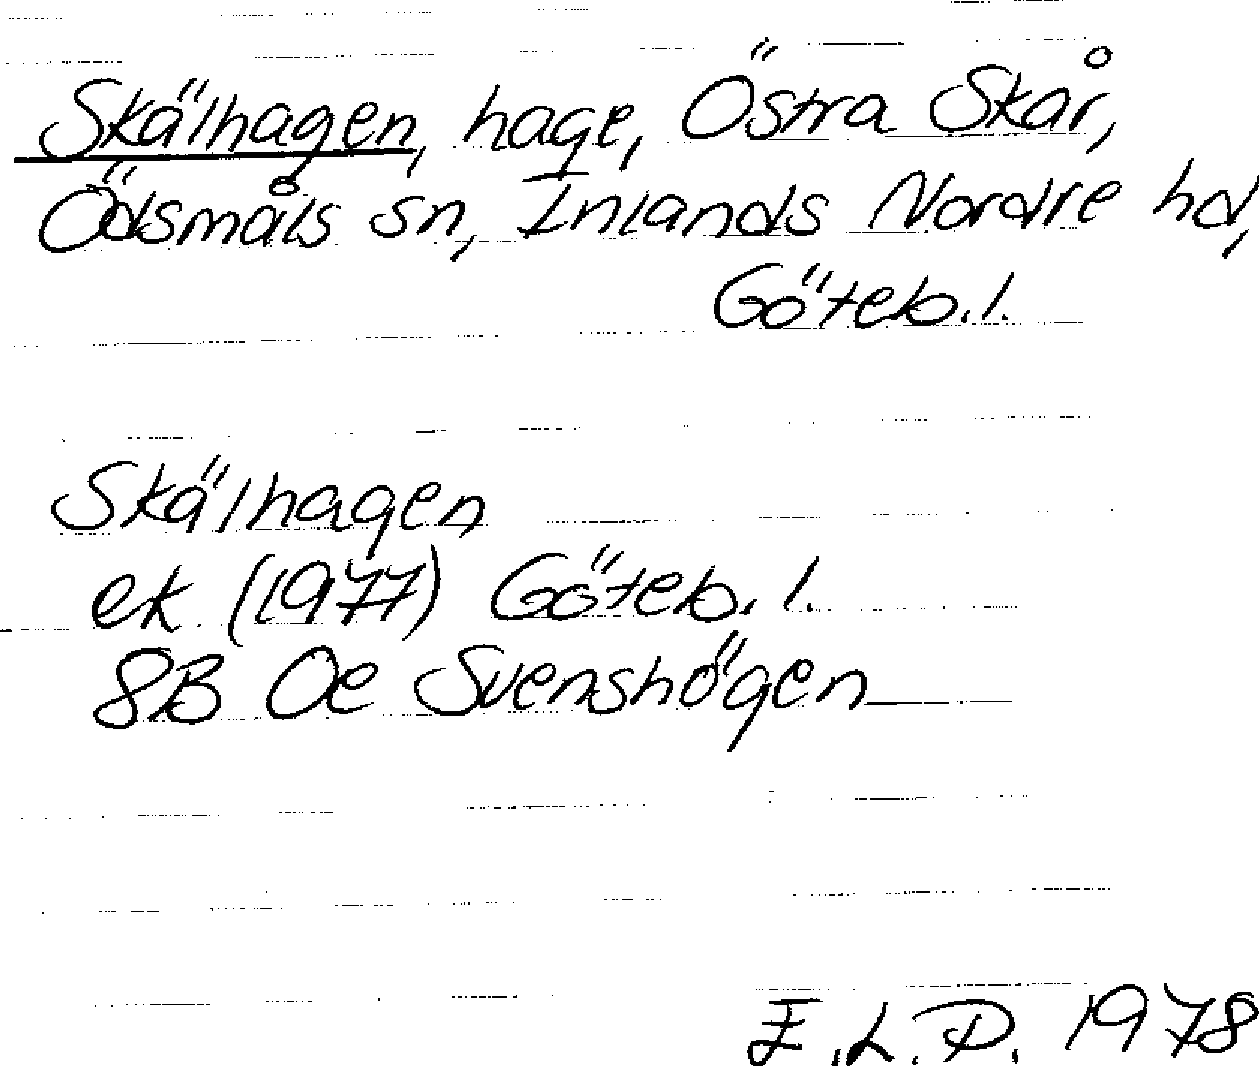 Skälhagen, hage, Östra Skår,
Ödsmåls sn, Inlands Nordre hd,
Göteb. l.
Skälhagen
ek. (1977) Göteb. l.
8B 0e Svenshögen
E.L.P. 1978